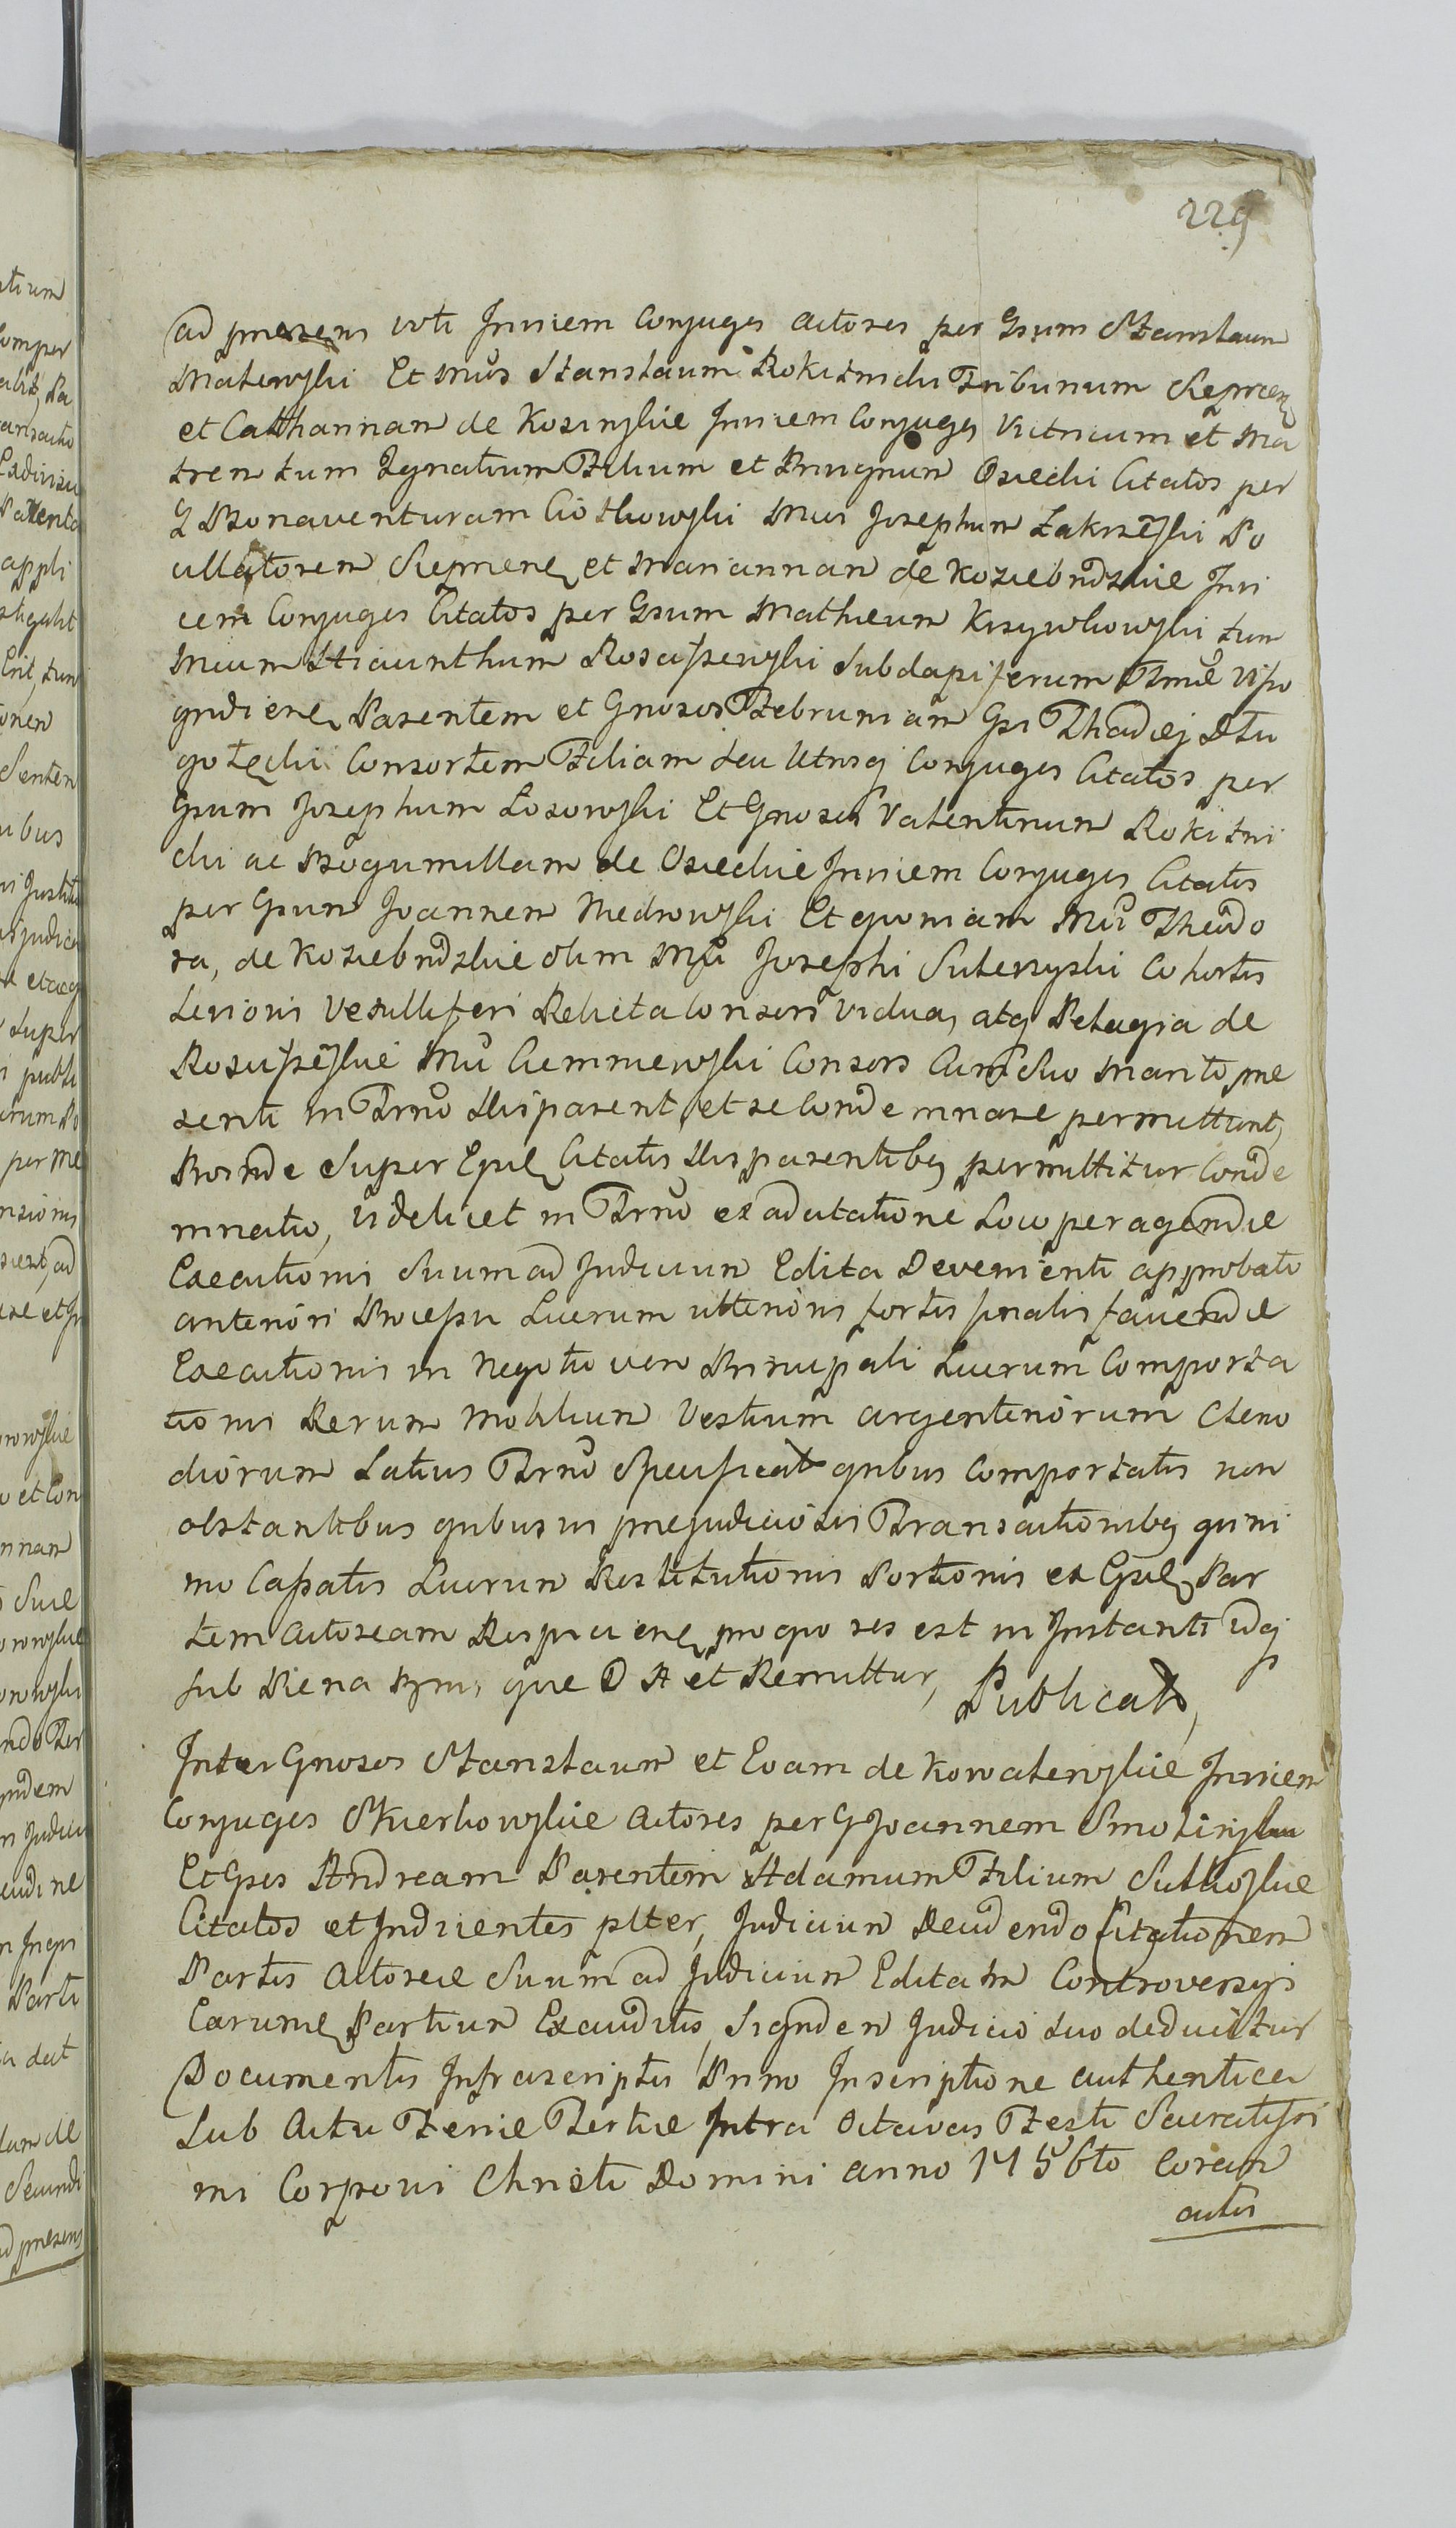 229
ad presens uti Invicem Conjuges actores per Gsum Stanislaum
Malewski Et Mcos Stanislaum Rokitnicki Tribunum Sieprcen
et Catharinam de Kosinskie Invicem Conjuges Vitricum et Ma
trem tum Ignatium Filium et Privignum Osiecki Citatos per
G Bonaventuram Ciółkowski Mcos Josephum Zakrzeski Po
cillatorem Sieprcen et Mariannam de Koziebrodzkie Invi
cem Conjuges Citatos per Gsum Mathieum Krzywkowski tum
Mcum Hiacinthum Rosciszewski Subdapiferum Vyszo
grodien Parentem et Gnosos Februniam Gsi Thadej Dłu
gołęcki Consortem Filiam seu Utrosq Conjuges Citatos per
Gsum Josephum Łosowski Et Gnosos Valentinum Rokitni
cki ac Bogumillam de Osieckie Invicem Conjuges Citatos
per Gsum Joannem Niedrowski Et quoniam Mca Theodo
ra, de Koziebrodzkie olim Mci Josephi Suterzyski Cohortis
Levioris Vexilliferi Relicta Consors Vidua, atq Pelagia de
Rosciszeskie Mci Ciemniewski Consors Cum Suo Marito pre
senti in Trno Nisparent, et se Condemnare permittunt,
Proinde Super Citatis Nisparentibq permittitur Conde
mnatio, videlicet in Trno ex adcitatione Loco peragendæ
Executionis Suum ad Judicium Edita Devenienti approbato
anteriori Processu Lucrum ulterioris fortis finalis favendæ
Executionis in Negotio vero Principali Lucrum Comporta
tionis Rerum Mobilium Vestium argenteriorum Cleno
diorum Latius Trno Specificat quibus Comportatis non
obstantibus quibusvis prejudiciosis Transactionibq quini
mo Cassatis Lucrum Restitutionis Portionis ex Par
tem actoream Respicien pro quo res est in Instanti idq
sub Pæna que D A et Remittur, Publicat,
Inter Gnosos Stanislaum et Evam de Kowalewskie Invicem
Conjuges Skierkowskie actores per G Joannem Smolinski
Et Gsos Andream Parentem Adamum Filium Sulkoskie
Citatos et Indicentes plter, Judicium Decidendo Citationem
Partis actoreæ Suum ad Judicium Editam Controversijs
Earumq Partium Exauditis, Siquidem Judicio Suo deducitur
Documentis Infrascriptis Primo Inscriptione authentica
Sub actu Feriæ Tertiæ Intra Octavas Festi Sacratissi
mi Corporis Christi Domini anno 1756to Coram
actis